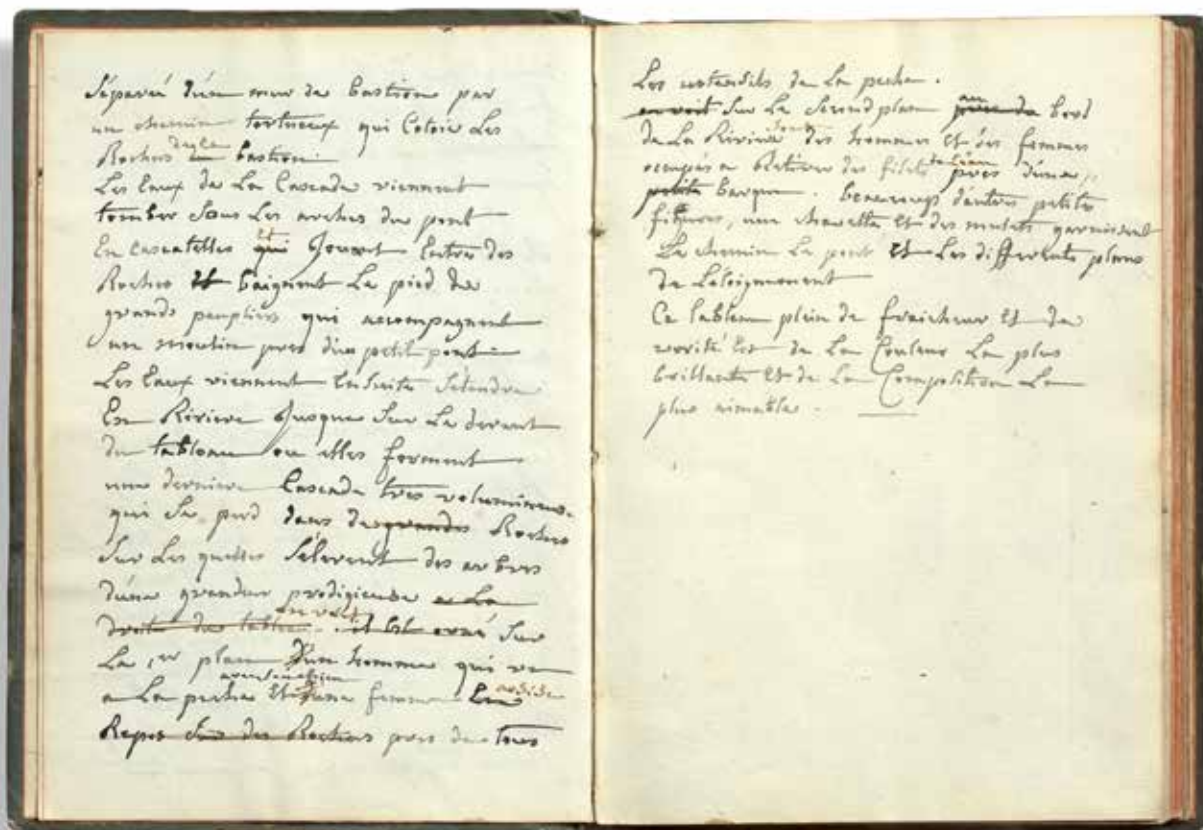 Séparée d'un mur de bastion par
un chemin tortueux qui Cotoie Les
Rochers de la bastion
Les Eaux de La Cascade viennent
tomber Sous Les arches du pont
En cascatelles Et Jouent Entre des
Rochers Et baignent Le pied de
grands peupliers qui accompagnent
un moulin pres d'un petit pont
Les Eaux viennent Ensuite S'étendre
En Riviere Jusque Sur Le devant
du tableau ou elles forment
une derniere Cascade tres volumineuse
qui Se perd dans de grandes Rochers
Sur Les quelles S'élevent des arbres
d'une grandeur prodigieuse a La
droite du tableau on voit il Est orné Sur
Le 1er plan d'un homme qui va
a La peche avec son chien Et d'une femme assise
Repos Sur des Rochers pres de tous
Les ustensils de La peche.
on voit Sur Le Second plan au bord
de La Riviere Sont des hommes Et des femmes
occupés a Retirer des filets de l'eau pres d'une
petite barque. beaucoup d'autres petites
figures, une charette Et des mulets garnissent
Le chemin Le pont Et Les différents plans
de L'éloignement
Ce tableau plein de fraicheur Et de
verité Est de La Couleur La plus
brillante Et de La Composition La
plus aimable.